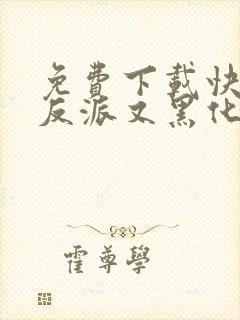 免費下載快
反派又黑化
霍尊學